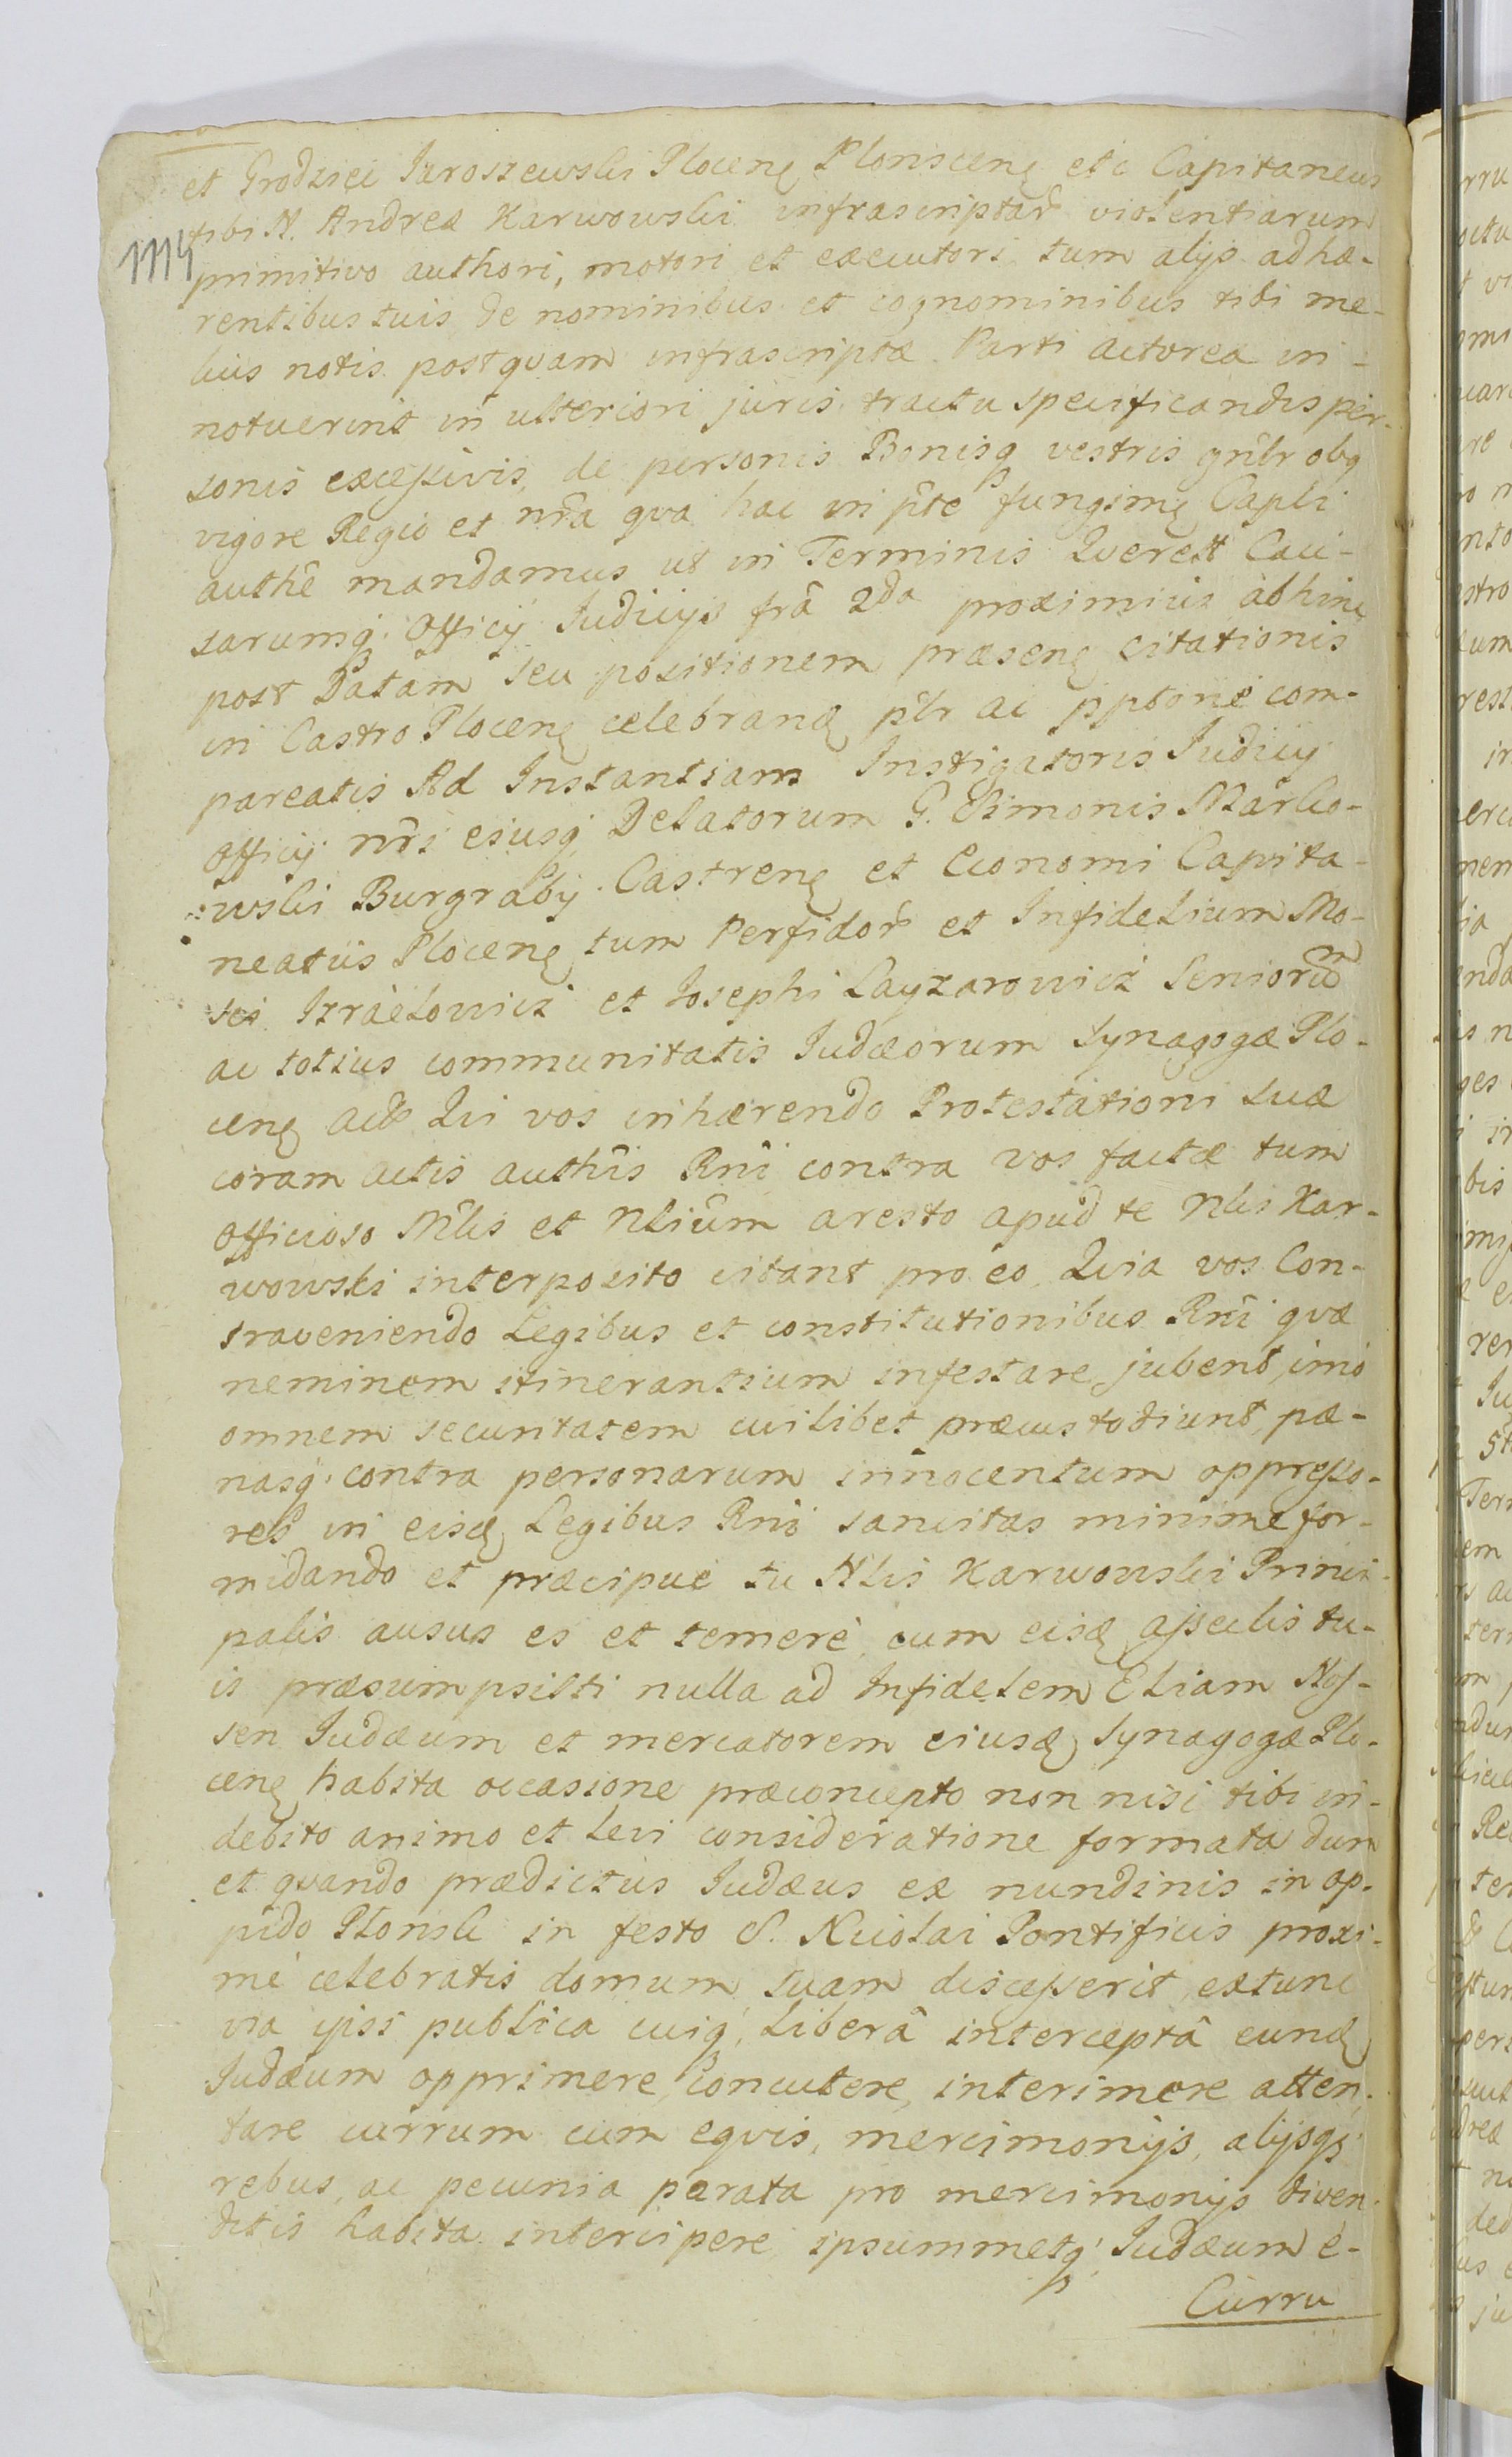 et Grodziei Jaroszewski Plocenę Plonscenę etc Capitaneus
tibi N. Andreæ Karwowski infrascriptar violentiarum
1114
primitivo authori, motori et executori tum alijs adhæ-
rentibus tuis de nominibus et cognominibus tibi me-
lius notis postquam infrascriptæ Parti actoreæ in-
notuerint in ulteriori juris tractu specificandis per-
sonis excessivis, de personis Bonisq vestris gnlr obq
vigore Regio et nra qva hac in pte fungimę Capli
authê mandamus ut in Terminis Qverell Cau-
sarumq. Officij Judicijs frâ 2da proximius abhinc
post Datam seu positionem præsenę citationis
in Castro Plocenę celebranę plr ac pptorie com-
pareatis Ad Instantiam Instigatoris Judicij
Officij nri eiusq, Delatorum G. Simonis Marko-
wski Burgrabij Castrenę et Economi Capita-
neatus Plocenę tum Perfidor et Infidelium Mo-
sis Izraelowicz et Josephi Layzarowicz Seniorum
ac totius communitatis Judæorum Synagogæ Plo-
cenę act Qui vos inhærendo Protestationi suæ
coram actis authîs Rnî contra vos factæ tum
officioso Mlis et Nlium aresto apud te Nlis Kar-
wowski interposito citant pro eo, Qvia vos Con-
traveniendo Legibus et constitutionibus Rnî qvæ
neminem itinerantium infestare jubent, imo
omnem securitatem cuilibet præcustodiunt, pæ-
nasq. contra personarum innocentum oppresso-
res in eisdę Legibus Rni sancitas minime for-
midando et præcipue tu Nlis Karwowski Princi-
palis ausus es et temerè cum eisdę asseclis tu-
is præsumpsisti nulla ad Infidelem Eliam Nos-
sen Judæum et mercatorem eiusdę Synagogæ Plo-
cenę habita occasione præconcepto non nisi tibi in-
debito animo et levi consideratione formata dum
et quando prædictus Judæus ex nundinis in op-
pido Plonsk in festo S. Nicolai Pontificis proxi-
mè celebratis domum suam discesserit, extunc
via ipsi publica cuiq, liberâ interceptâ eundę
Judæum opprimere, concutere, interimere atten-
tare currum cum eqvis, mercimonijs, alijsq,
rebus, ac pecunia parata pro mercimonijs diven-
ditis habita intercipere ipsummetq, Judæum e-
Curru